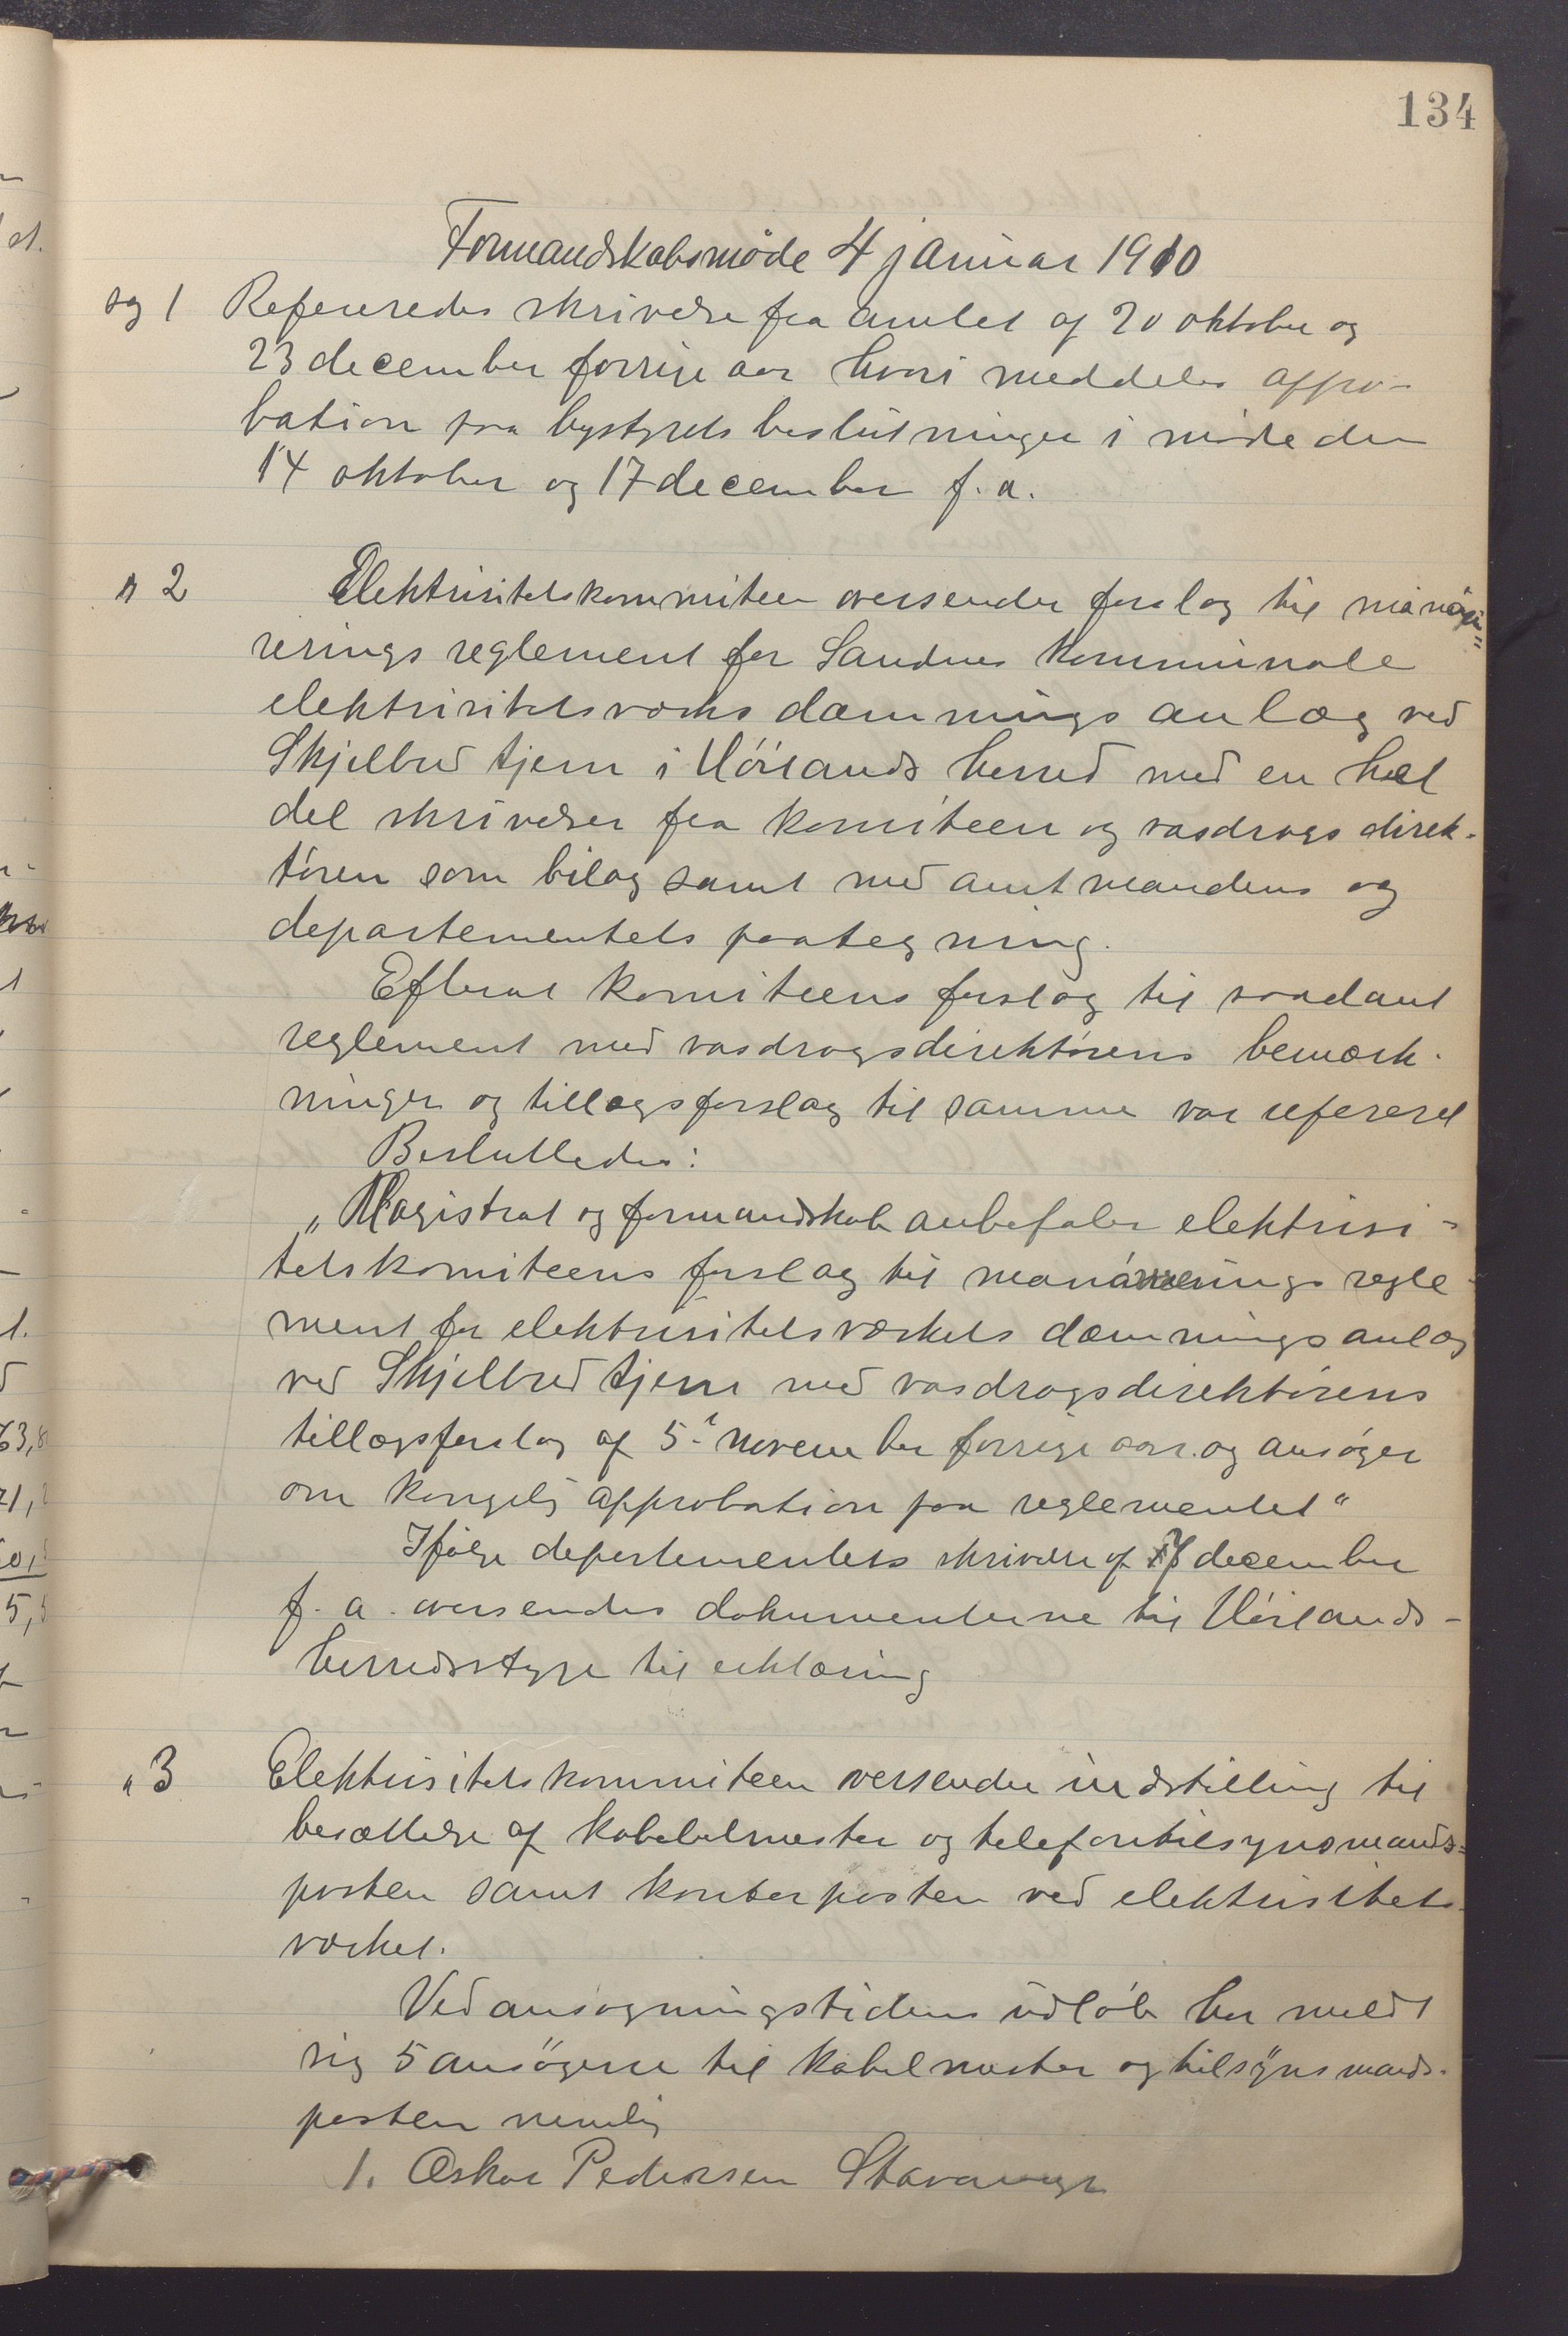 134
Formandskabsmöde 4 januar 1910
sag 1 Refereredes skrivelse fra amtet af 20 oktober og
23 december forrige aar hvori meddeles appro-
bation paa bystyrets beslutninger i möde den
14 oktober og 17 december f. a.
" 2 Elektrisitetskommiteen oversender forslag til manöve-
rerings reglement for Sandnes kommunale
elektrisitetsværks dæmnings anlæg ved
Skjelbred tjern i Höilands herred med en hel
del skrivelser fra komiteen og vasdrags direk-
tören som bilag samt med amtmandens og
departementets paategning.
Efterat komiteens forslag til saadant
reglement med vasdragsdirektörens bemærk-
ninger og tillægsforslag til samme var refereret
Besluttedes:
"Magistrat og formandskab anbefaler elektrisi-
tetskomiteens forslag til manövrerings regle-
ment for elektrisitetsværkets dæmnings anlæg
ved Skjelbred tjern med vasdragsdirektörens
tillægsforslag af 5. november forrige aar og ansöger
om kongelig approbation paa reglementet"
Ifölge departementets skrivelse af 7 december
f. a. oversendes dokumenterne til Höilands-
herredsstyre til erklæring
" 3 Elektrisitetskommiteen oversender indstilling til
besættelse af kabebelmester og telefontilsynsmands-
posten samt kontorposten ved elektrisitets-
værket.
Ved ansögningstidens udlöb har meldt
sig 5 ansögere til kabelmester og tilsynsmands-
posten nemlig
1. Oskar Pedersen Stavanger